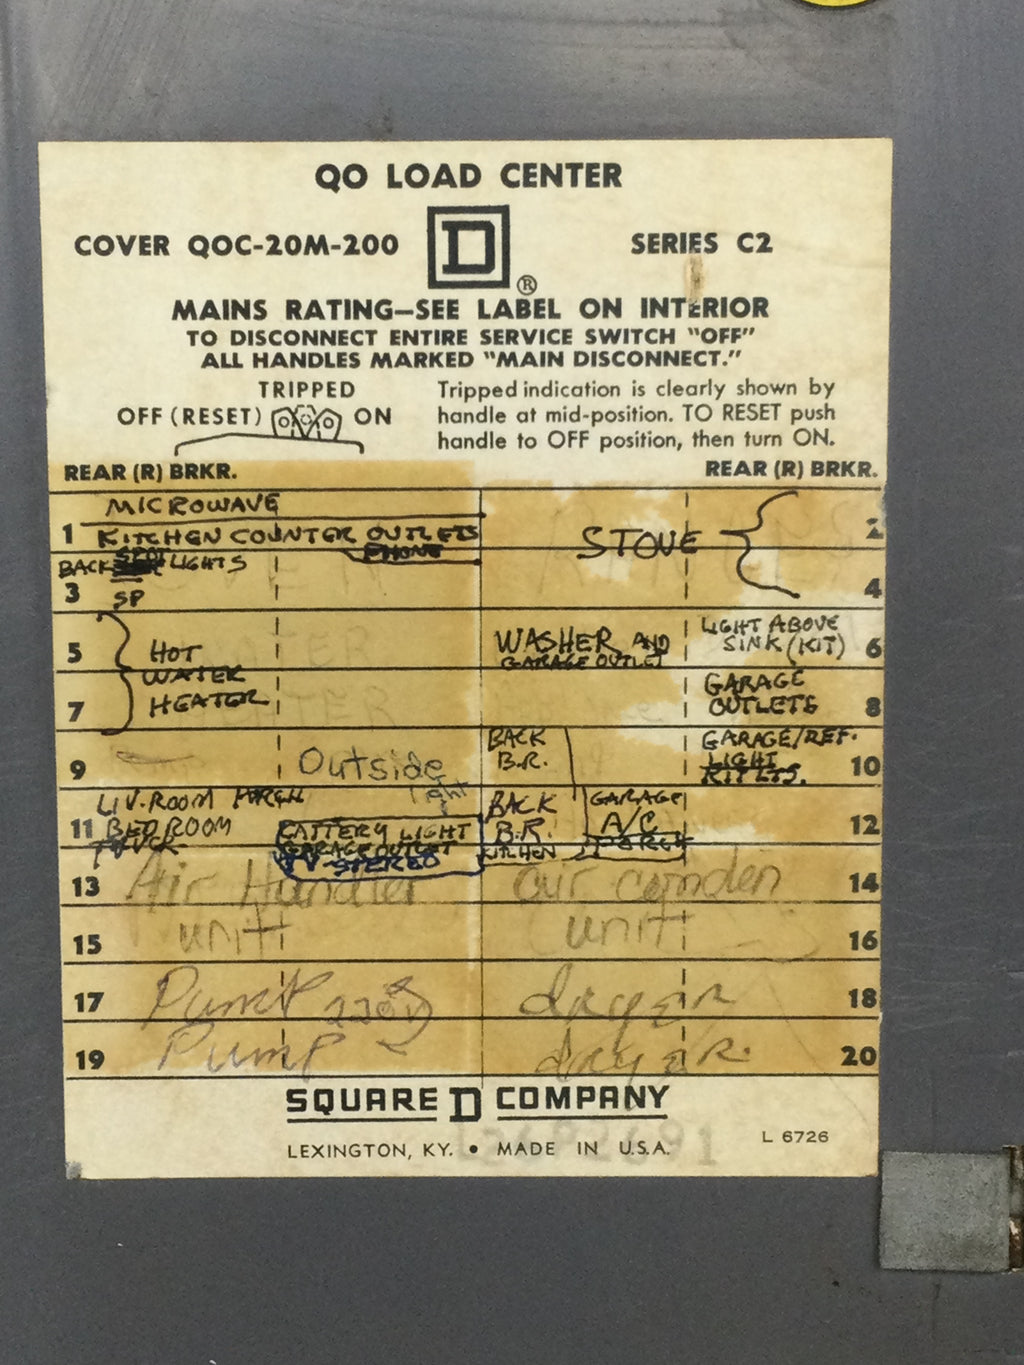 QO LOAD CENTER
COVER QOC-20M-200 D SERIES C2
®
MAINS RATING—SEE LABEL ON INTERIOR
TO DISCONNECT ENTIRE SERVICE SWITCH "OFF"
ALL HANDLES MARKED "MAIN DISCONNECT."
TRIPPED
OFF (RESET) ON
Tripped indication is clearly shown by
handle at mid-position. TO RESET push
handle to OFF position, then turn ON.
REAR (R) BRKR. REAR (R) BRKR.
MICROWAVE
1 KITCHEN COUNTER OUTLETS STOVE 2
PHONE
BACK SPOT LIGHTS
3 SP 4
5 HOT WASHER AND LIGHT ABOVE
GARAGE OUTLET SINK (KIT) 6
WATER
7 HEATER GARAGE
OUTLETS 8
9 Outside BACK GARAGE/REF. 10
light B.R. LIGHT
KIT LTS.
LIV. ROOM PORCH BACK GARAGE
11 BEDROOM BATTERY LIGHT B.R. A/C 12
GARAGE OUTLET KITCHEN PORCH
TV-STEREO
13 Air Handler our conden 14
15 unit unit 16
17 Pump 220V dryer 18
19 Pump dryer. 20
SQUARE D COMPANY
LEXINGTON, KY. • MADE IN U.S.A. L 6726